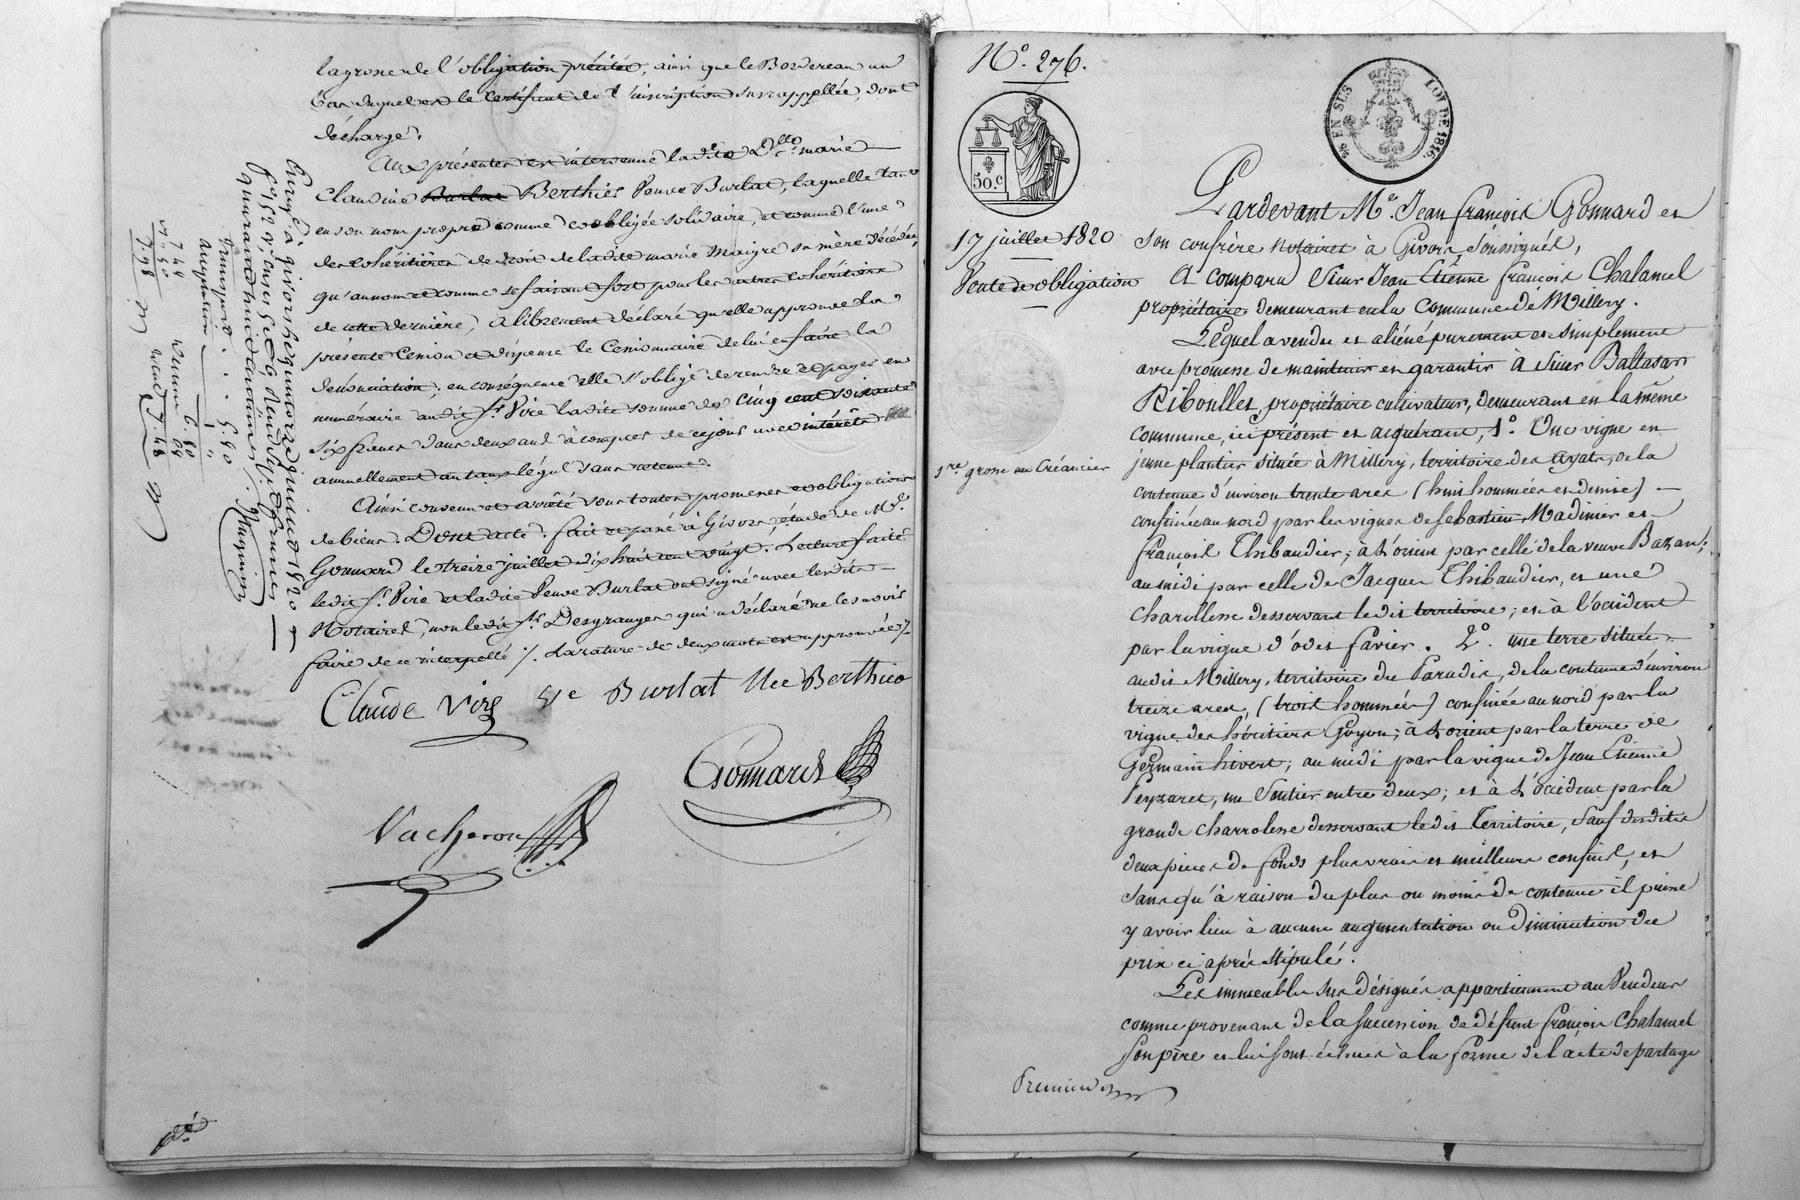 la grosse de l'obligation précitée, ainsi que le Bordereau au
bas duquel est le certificat de l'inscription surrappellée, dont
décharge.
Aux présentes est intervenue la dite D.lle marie
Claudine Burlat Berthier Veuve Burlat, laquelle tant
en son nom propre comme coobligée solidaire, et comme l'une
des cohéritières de droit de ladite marie Maigre sa mère décédée,
qu'au nom et comme se faisant fort pour les autres cohéritiers
de cette dernière, a librement déclaré qu'elle approuve la
présente Cession et dispense le Cessionnaire de lui en faire la
dénonciation; en conséquence elle s'oblige de rendre et payer en
numéraire au dit S.r Viré la dite somme de Cinq cent soixante
six francs dans deux ans à compter de ce jour avec intérêts
annuellement au taux légal sans retenue.
Ainsi convenu et arrêté sous toutes promesses et obligations
de biens. Dont acte. fait et passé à Givors, étude de M.e
Gonnard le treize juillet dix huit cent vingt. Lecture faite
ledit S.r Viré et la dite Veuve Burlat ont signé avec lesdits
Notaires, non ledit S.r Desgranges qui a déclaré ne le savoir
faire de ce interpellé ./. La rature de deux mots est approuvée ./.
Claude Viré Ve Burlat Née Berthier
Gonnard
Vacheron
Enregé à givors le quinze juillet 1820
f.o 152 v.o cases 5 et 6, Reçu
quarante huit centimes
7 44
7,48
N.o 276.
50.c
95 EN SUS LOI DE 1816.
17 juillet 1820
Vente et obligation
1.re grosse au Créancier
Pardevant M.e Jean françois Gonnard et
son confrère notaires à Givors soussignés,
A comparu Sieur Jean Etienne françois Chalamel
propriétaire demeurant en la Commune de Millery.
Lequel a vendu et aliéné purement et simplement
avec promesse de maintenir et garantir à Sieur Baltasar
Riboullet, propriétaire cultivateur, demeurant en la même
commune, ici présent et acquérant, 1.o Une vigne en
jeune plantier située à Millery, territoire des ayats, de la
contenue d'environ trente ares (huit hommées et demise)
confinée au nord par les vignes de Sebastien Madinier et
françois Thibaudier; à L'orient par celle de la veuve Bazan;
au midi par celle de Jacques Thibaudier, et une
charollesse desservant le dit territoire; et à l'occident
par la vigne d'odet favier. 2.o une terre située
audit Millery, territoire du Paradis, de la contenue d'environ
treize ares, (trois hommées) confinée au nord par la
vigne des héritiers Guyon; à L'orient par la terre de
Germain hivert; au midi par la vigne de Jean Etienne
Peyzaret, un Sentier entre deux; et à L'occident par la
grande charrolesse desservant le dit Territoire, Sauf desdites
deux pièces de fonds plus vrais et meilleurs confins, et
sans qu'à raison du plus ou moins de contenue il puisse
y avoir lieu à aucune augmentation ou diminution du
prix ci après stipulé.
Les immeubles sus désignés appartiennent au Vendeur
comme provenant de la succession de défunt françois Chalamel
Son père et lui sont échus à la forme de l'acte de partage
Premier